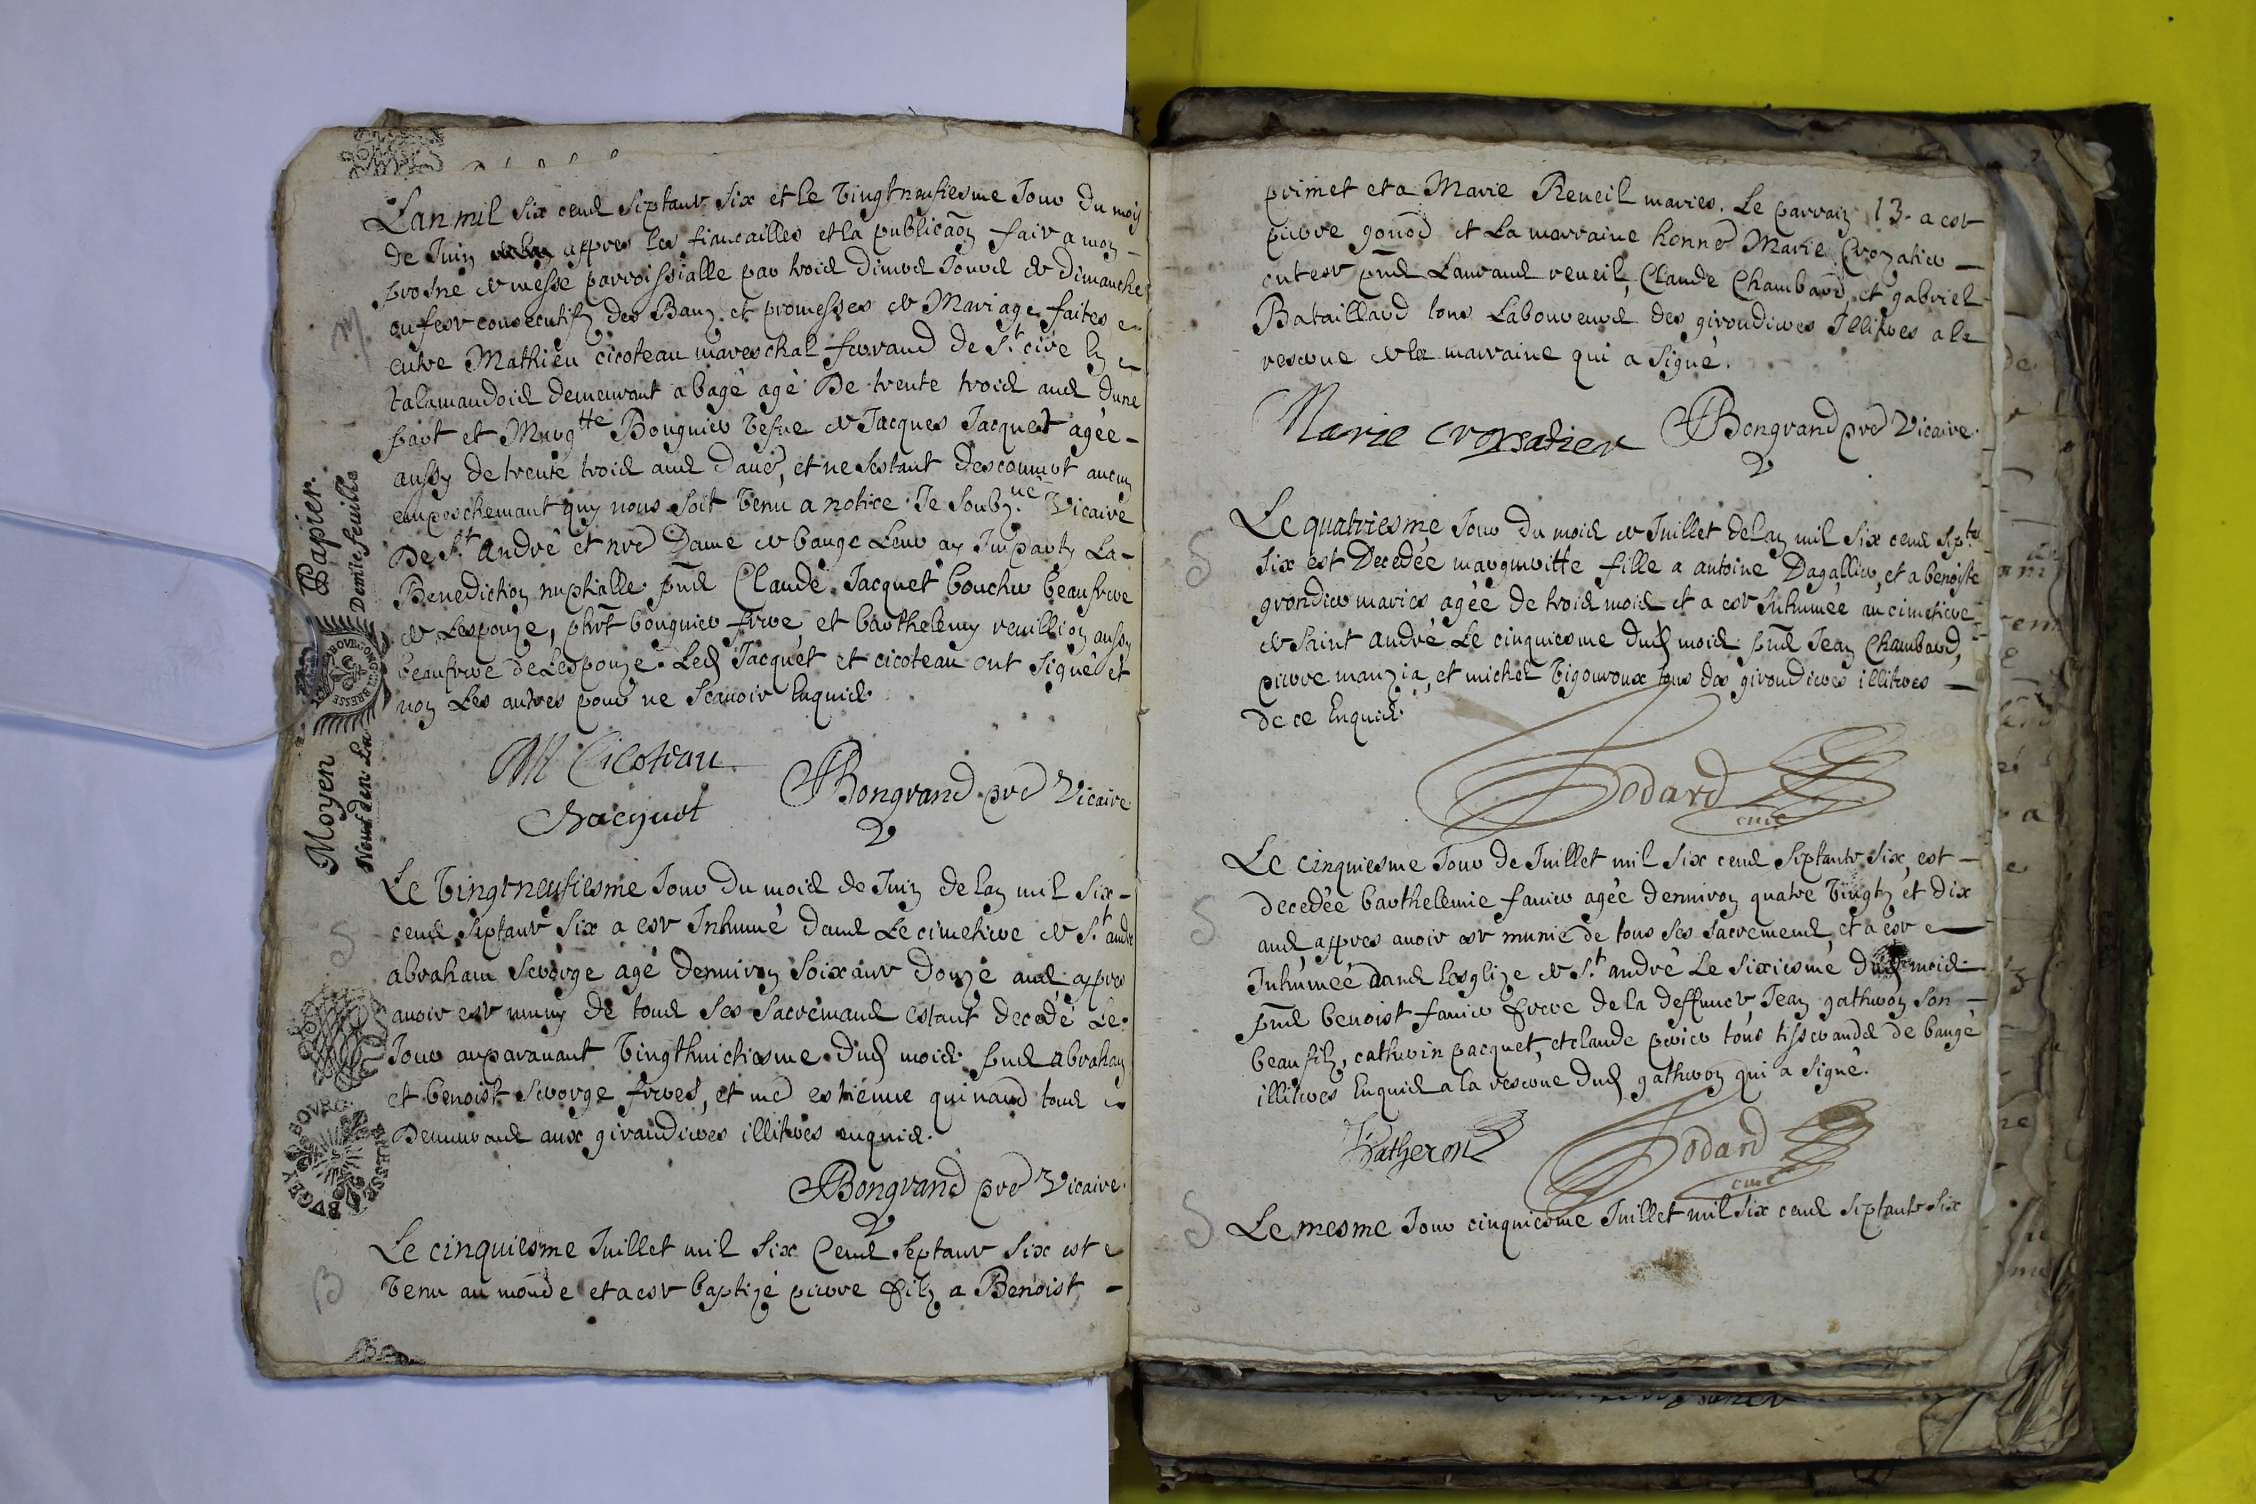 L'an mil six cens septante six et le vingtneufiesme Jour du mois
de Juin appres les fiançailles et la publicaon faite a mon
prosne de messe parroissialle par trois divers Jours de dimanche
ou feste consecutifz des Banz et promesses de Mariage faites
entre Mathieu cicoteau mareschal ferrand de St cire
talamandois demeurant a bagé agé De trente trois ans d'une
part et Margtte Bouguier vefue de Jacques Jacquet agée
aussy de trente trois ans d'auē, et ne s'estant descouuert aucun
empeschemant quy nous soit venu a notice Je soubz.né Vicaire
De St André et nre Dame de bauge Leur ay Imparty La
Benediction nuptialle pnd Claude Jacquet boucher beaufrere
de Lespouze, phbt bouguier frere, et barthelemy reuillion aussy
beaufrere de Lespouze. Leds Jacquet et cicoteau ont signé et
non Les autres pour ne scauoir Enquis.
M Cicoteau
Jacquet Bongrand pre Vicaire
Le vingtneufiesme Jour du mois de Juin de lan mil six
cens septante six a este Inhumé dans Le cimetiere de St andre
abraham Scrorge agé denuiron soixante douze ans appres
auoir este muny de tous ses sacremans estant decedé Le
Jour auparauant vingthuictiesme duds mois pnd abraham
et benoist Scrorge freres, et me estienne quinard tous
Demeurans aux girandieres illitres enquis.
Bongrand pre Vicaire
Le cinquiesme Juillet mil six Cens septante six est
venu au monde et a este baptizé pierre filz a Benoist
primet et a Marie Reueil maries. Le parrain 13. a este
pierre gonod et La marraine honne Marie Crozatier
en teste pnd Laurand reueil, Claude Chambard, et gabriel
Bataillard tous Laboureurs des girondieres Illitres a la
reserue de la marraine qui a signé.
Marie crozsatier Bongrand pre Vicaire
Le quatriesme Jour du mois de Juillet de lan mil six cens septte
six est Decedée marguritte fille a antoine Dagallier, et a benoiste
grondier maries agée de trois mois et a este Inhumée au cimetiere
de saint andré Le cinquiesme duds mois pnd Jean Chambard,
pierre manzia, et michel vigouroux tous des girondieres illitres
de ce Enquis.
Godard
curé
Le cinquiesme Jour de Juillet mil six cens septante six, est
decedée barthelemie fanier agée denuiron quatre vingtz et dix
ans, appres auoir este munie de tous ses sacremens, et a este
Inhumée dans lesglize de St andré Le sixiesme duds mois
pnd benoist fanier frere de la deffuncte, Jean gatheron son
beaufilz, catherin pacquet, et claude perier tous tisserands de baugé
illitres Enquis a la reserue duds gatheron qui a signé.
Gatheron Godard
curé
Le mesme Jour cinquiesme Juillet mil six cens septante six
Moyen Papier.
Neuf den. La Demie feuille
BOVRG BRESSE BVGEY
M
S
B
S
S
S